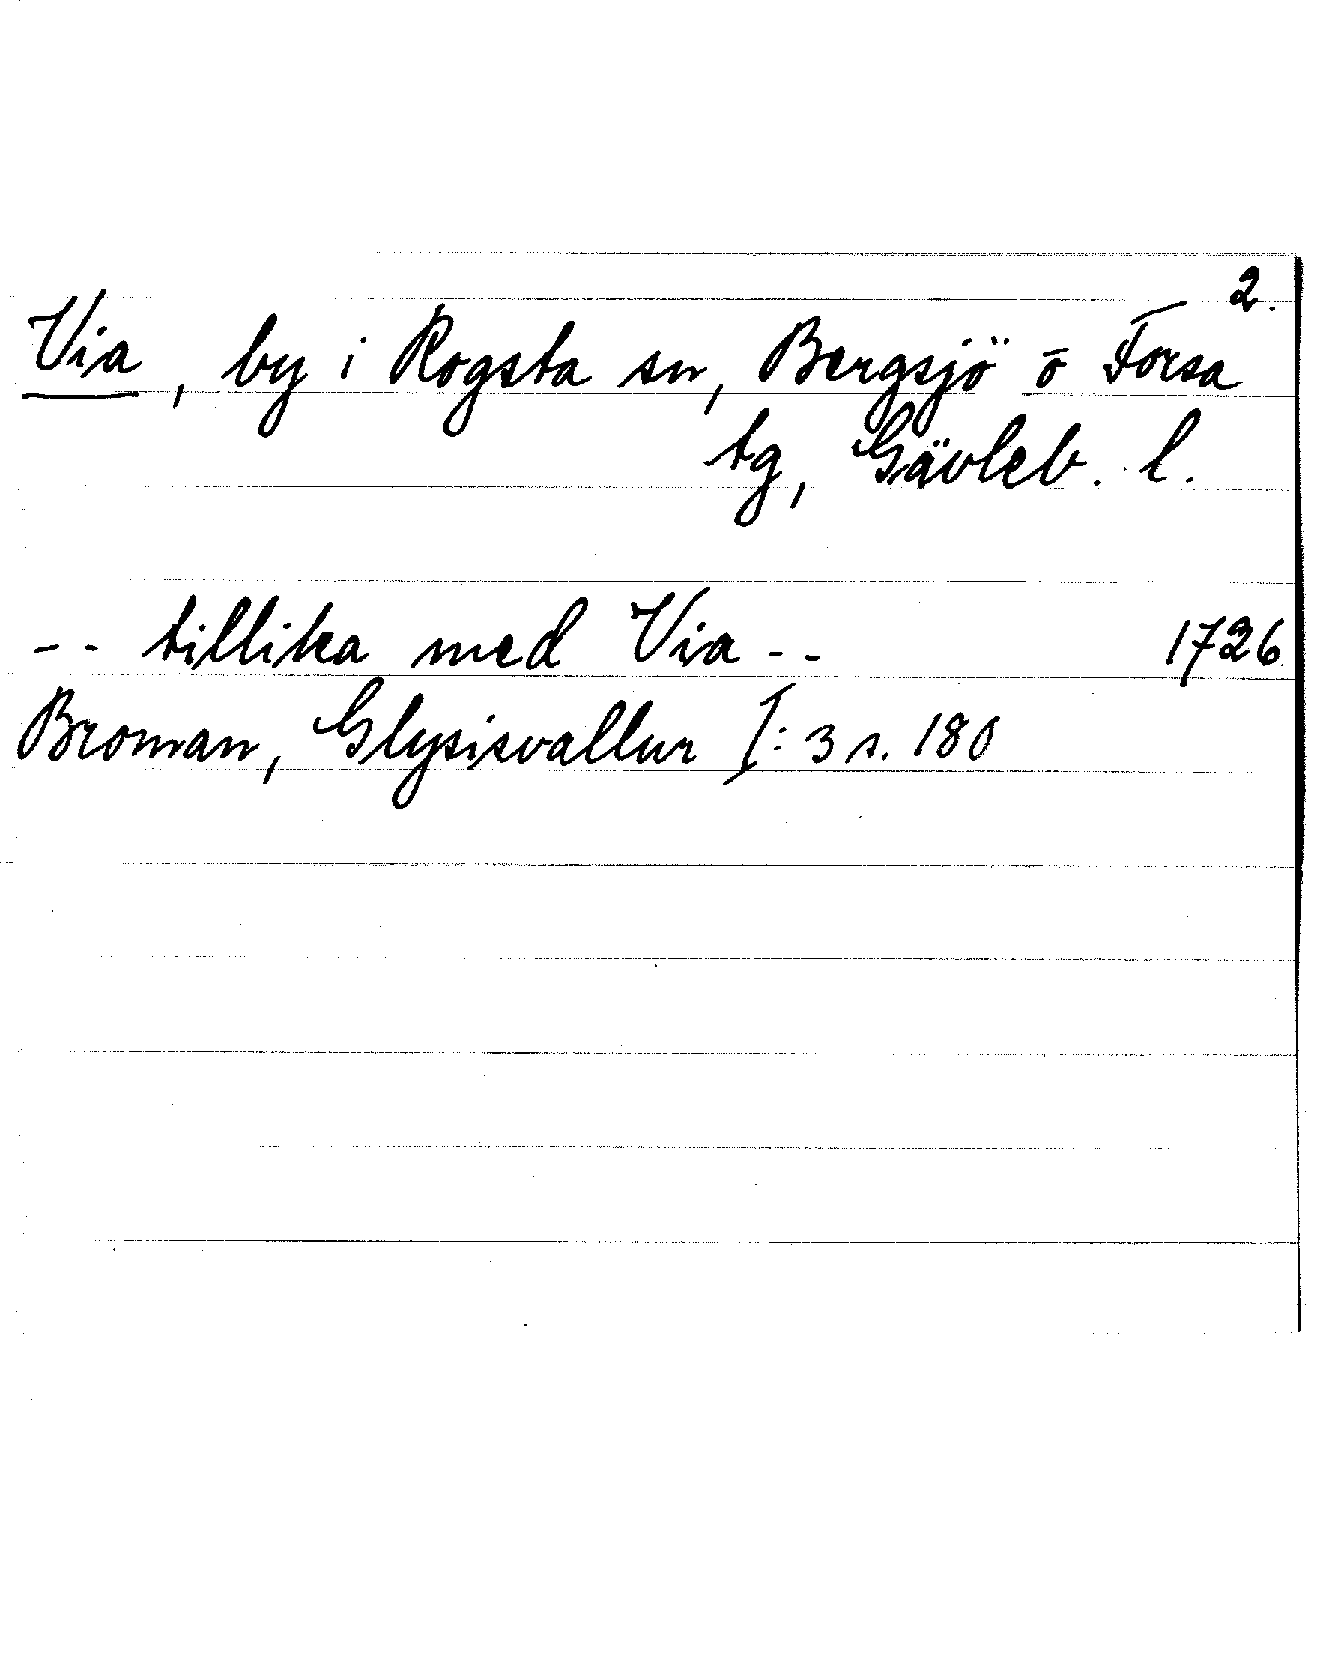 2.
Via, by i Rogsta sn, Bergsjö o Forsa
tg, Gävleb. l.
-- tillika med Via -- 1726
Broman, Glysisvallur I:3 s. 180